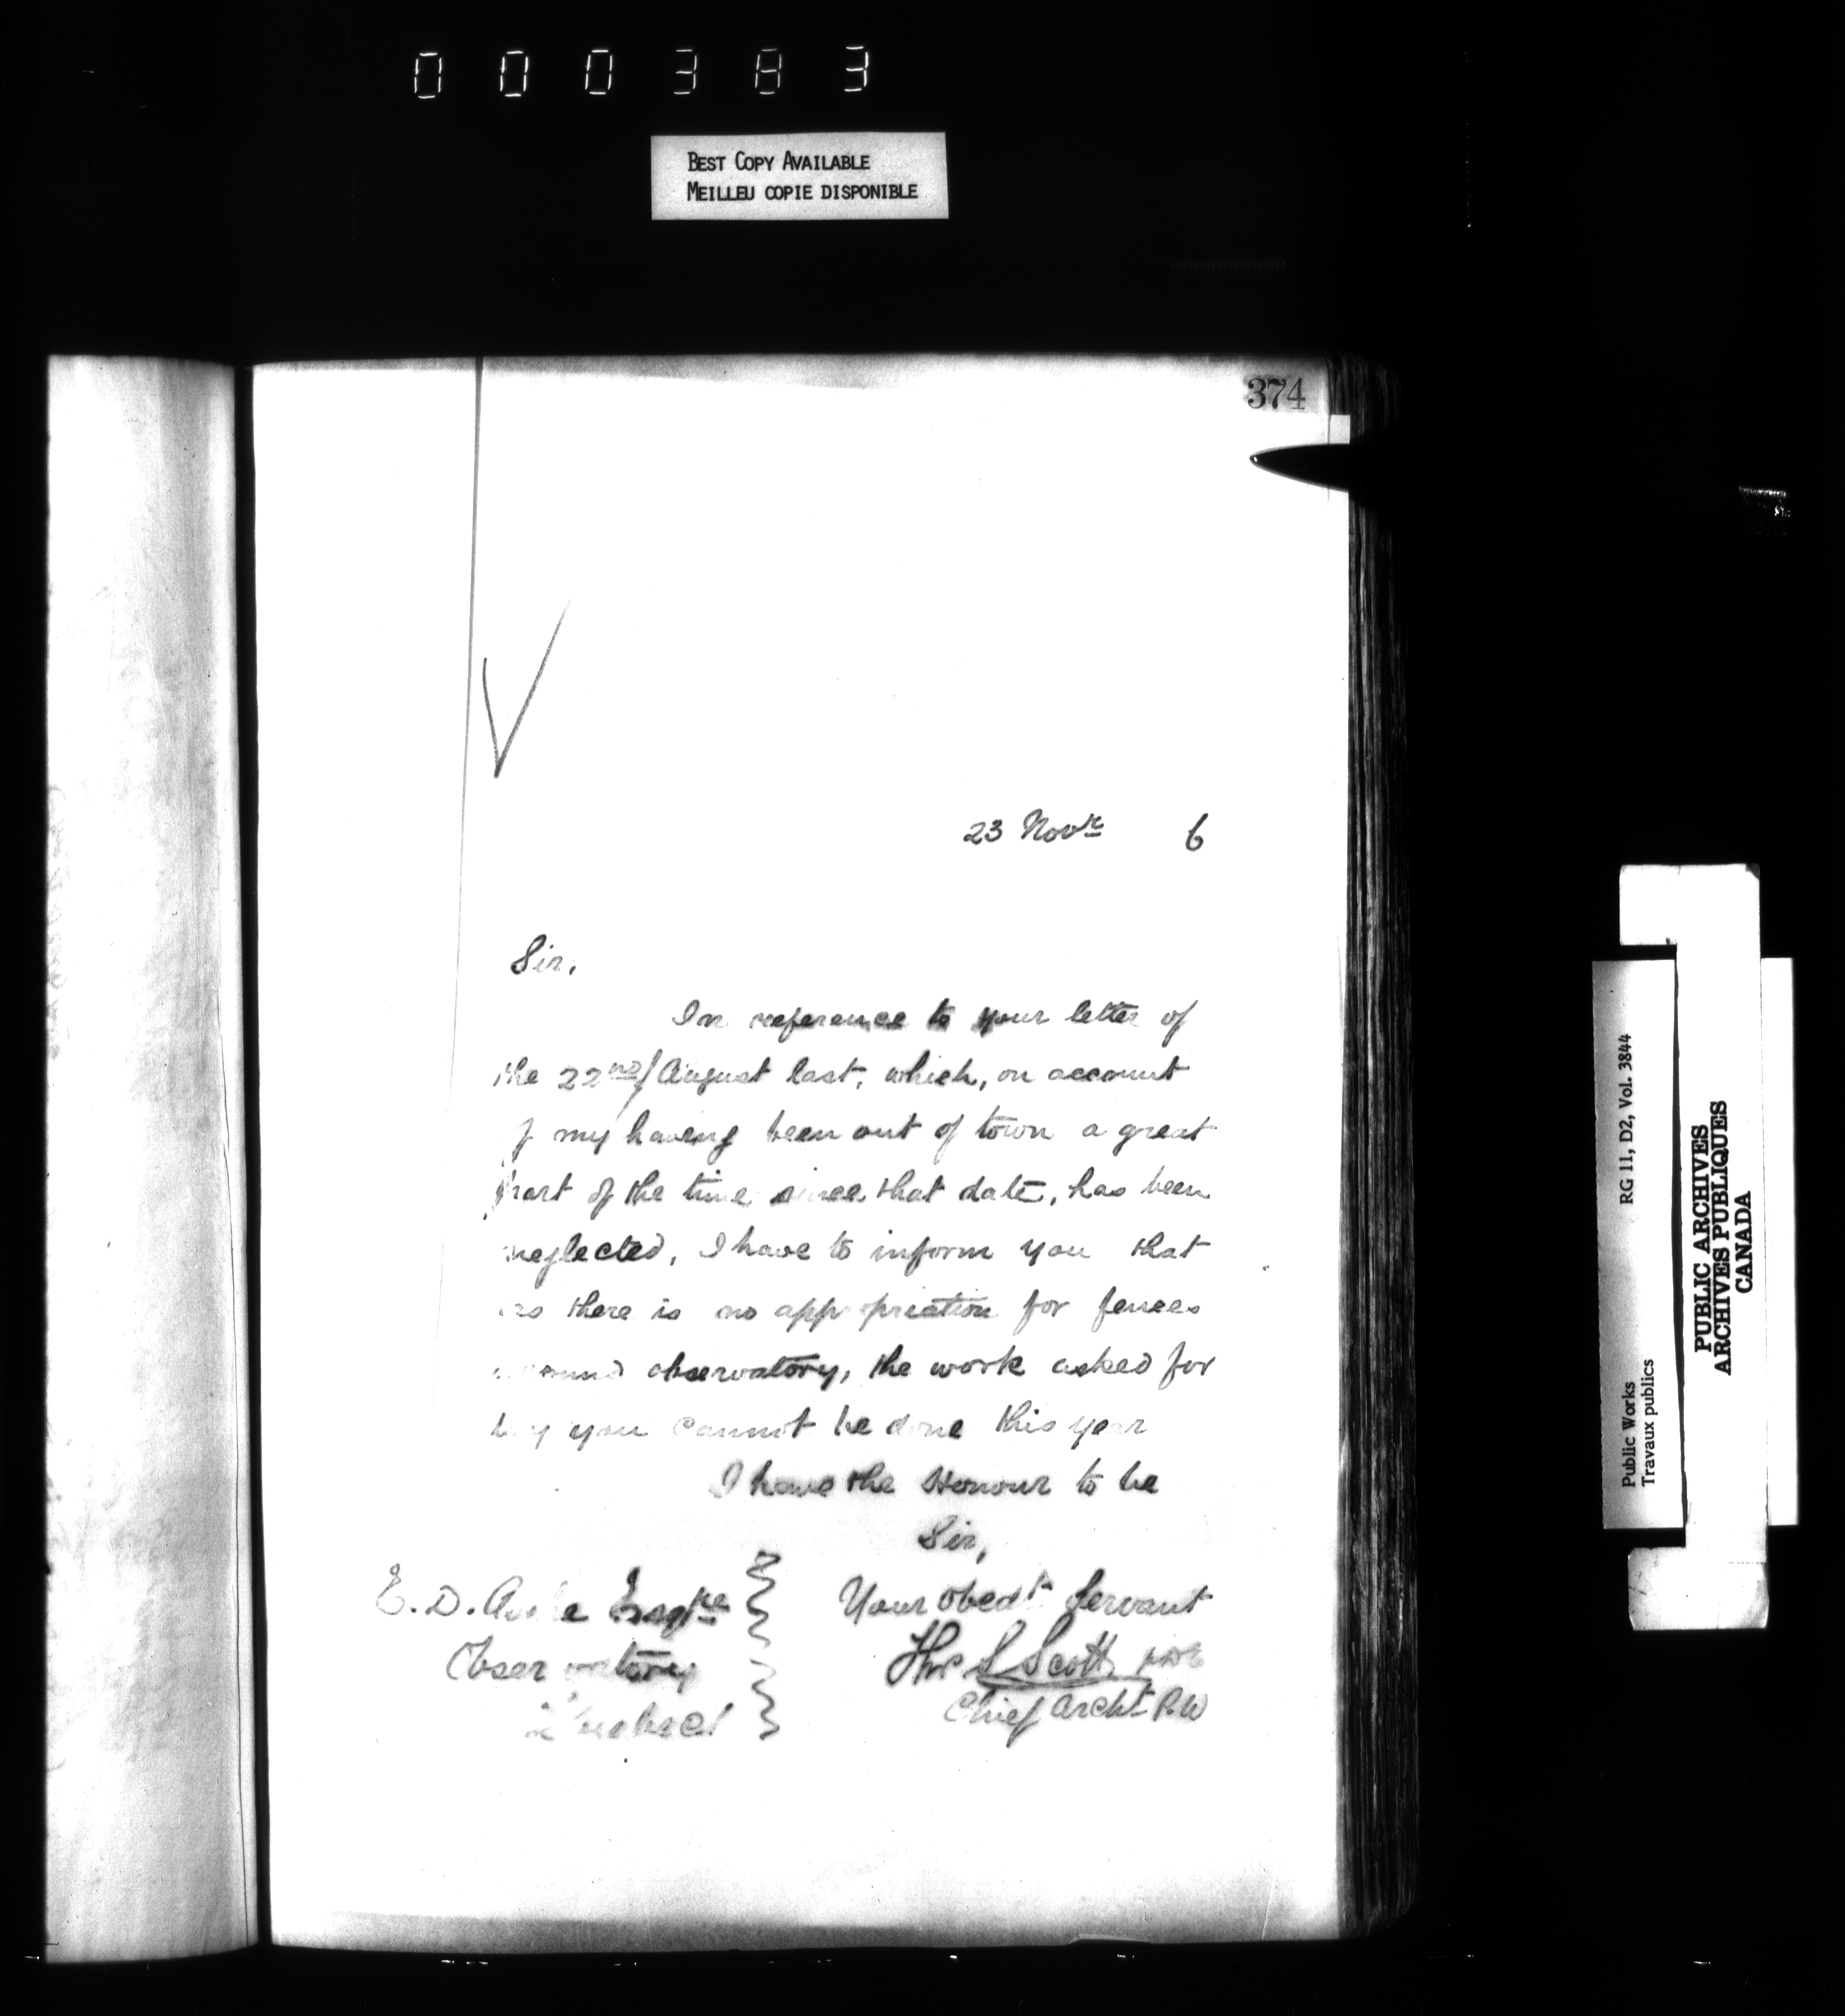 000383
BEST COPY AVAILABLE
MEILLEU COPIE DISPONIBLE
374
23 Novr 6
Sir,
In reference to your letter of
the 22nd August last, which, on account
of my having been out of town a great
part of the time since that date, has been
neglected, I have to inform you that
as there is no appropriation for fences
around observatory, the work asked for
by you cannot be done this year
I have the Honour to be
Sir,
Your obedt Servant
Thos S Scott
Chief Archt P.W
E. D. Esqre
Observatory
Quebec
RG 11, D2, Vol. 3844
Public Works
Travaux publics
PUBLIC ARCHIVES
ARCHIVES PUBLIQUES
CANADA